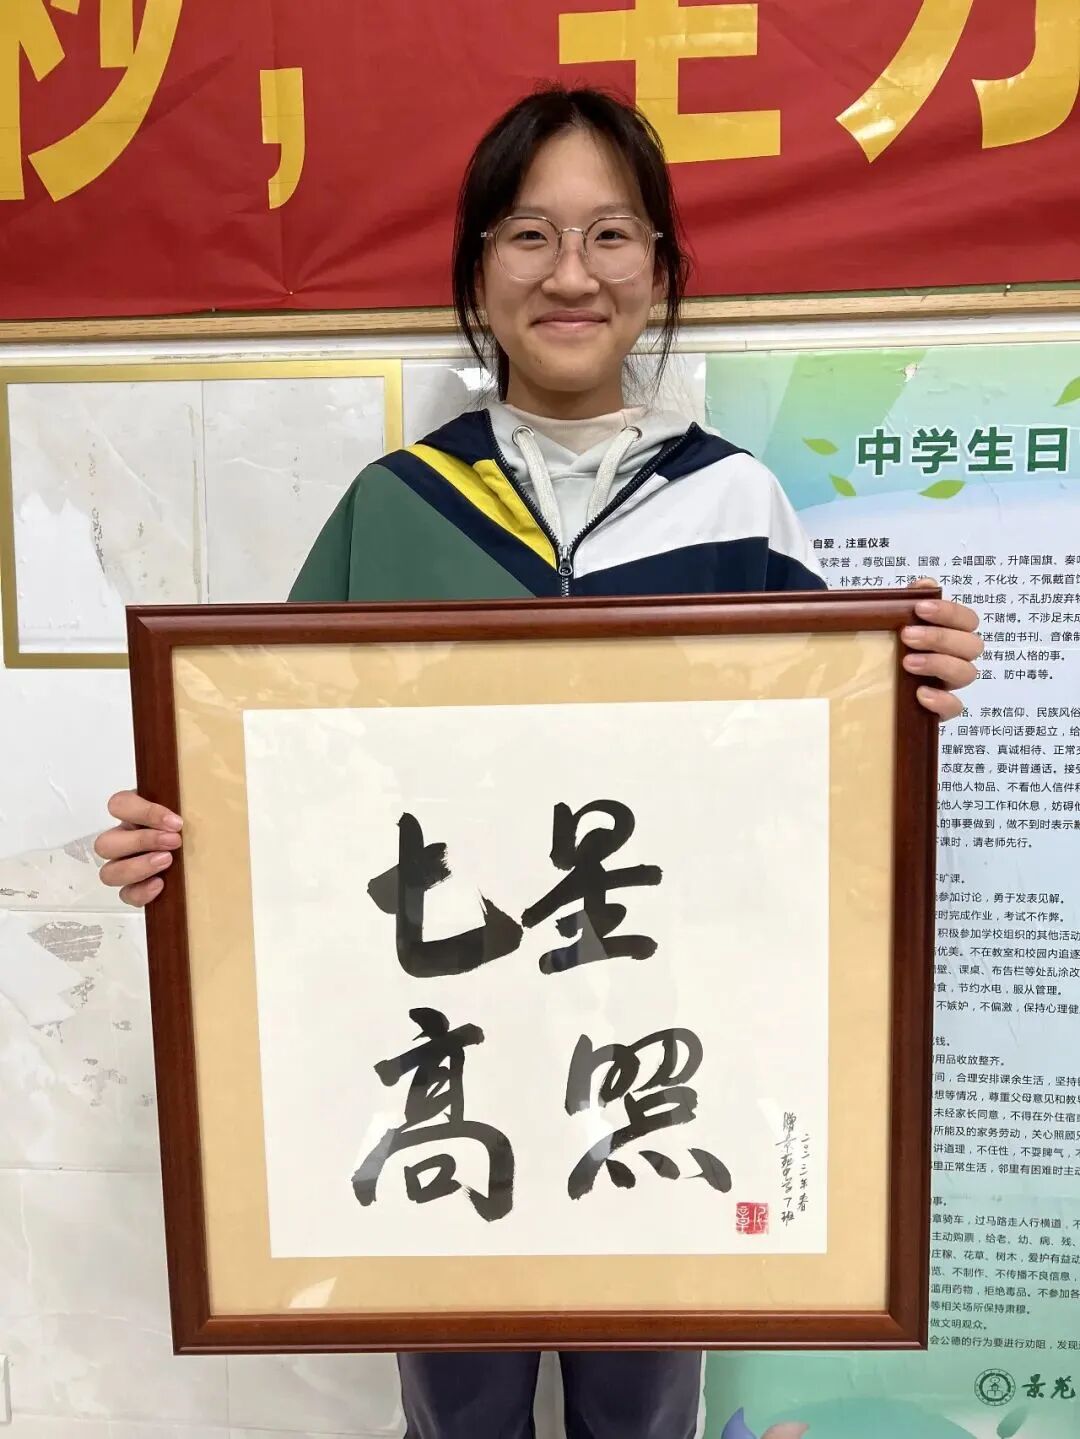 中学生日
自爱，注重仪表
家荣誉，尊敬国旗、国徽，会唱国歌，升降国旗、奏
朴素大方，不烫发，不染发，不化妆，不佩戴首饰
不随地吐痰，不乱扔废弃物
不赌博。不涉足未成
迷信的书刊、音像制
做有损人格的事。
防盗、防中毒等。
格、宗教信仰、民族风俗
好，回答师长问话要起立，给
理解宽容、真诚相待、正常交
态度友善，要讲普通话。接受
动用他人物品、不看他人信件和
他人学习工作和休息，妨碍他
的事要做到，做不到时表示歉
下课时，请老师先行。
不旷课。
参加讨论，勇于发表见解。
按时完成作业，考试不作弊。
积极参加学校组织的其他活动
优美。不在教室和校园内追逐
壁、课桌、布告栏等处乱涂改
粮食，节约水电，服从管理。
不嫉妒，不偏激，保持心理健
钱。
用品收放整齐。
间，合理安排课余生活，坚持
想等情况，尊重父母意见和教
未经家长同意，不得在外住宿
所能及的家务劳动，关心照顾
讲道理，不任性，不耍脾气，
里正常生活，邻里有困难时主动
事。
章骑车，过马路走人行横道，不
主动购票，给老、幼、病、残、
庄稼、花草、树木，爱护有益动
览、不制作、不传播不良信息，
滥用药物，拒绝毒品。不参加各
等相关场所保持肃穆。
做文明观众。
会公德的行为要进行劝阻，发现
七星
高照
二〇二二年春
赠景苑中学7班
景苑